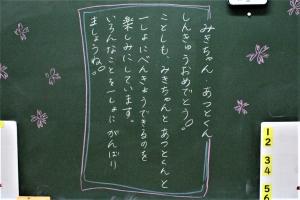 みきちゃん　あつとくん
しんきゅうおめでとう。
ことしも、みきちゃんとあつとくんと
一しょにべんきょうできるのを
楽しみにしています。
いろんなことを一しょに がんばり
ましょうね。
12
34
56